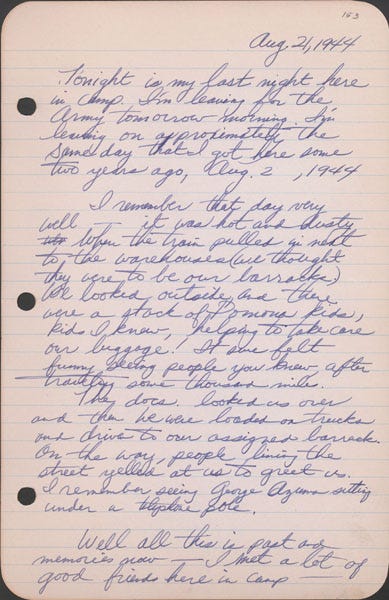 153
Aug. 21, 1944
Tonight is my last night here
in camp. I'm leaving for the
Army tomorrow morning. I'm
leaving on approximately the
same day that I got here some
two years ago, Aug. 2 , 1944
I remember that day very
well — it was hot and dusty
When the train pulled in next
to the warehouses (we thought
they were to be our barracks)
We looked outside, and there
were a stack of Pomona kids,
kids I knew, helping to take care
our luggage. It sure felt
funny seeing people you knew, after
traveling some thousand mile.
The docs. looked us over
and then we were loaded on trucks
and drive to our assigned barrack.
On the way, people lining the
street yelled at us to greet us.
I remember seeing George Azuma sitting
under a telephone pole.
Well all this is past and
memories now — I met a lot of
good friends here in camp —